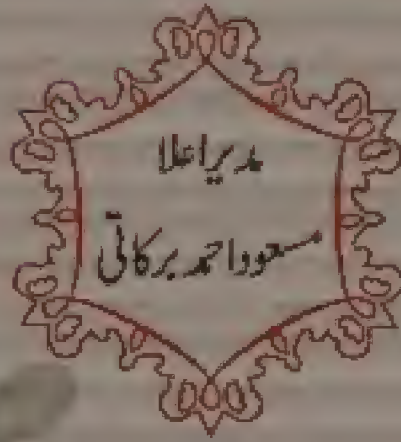 مدیر اعلا
مسعود احمد برکاتی